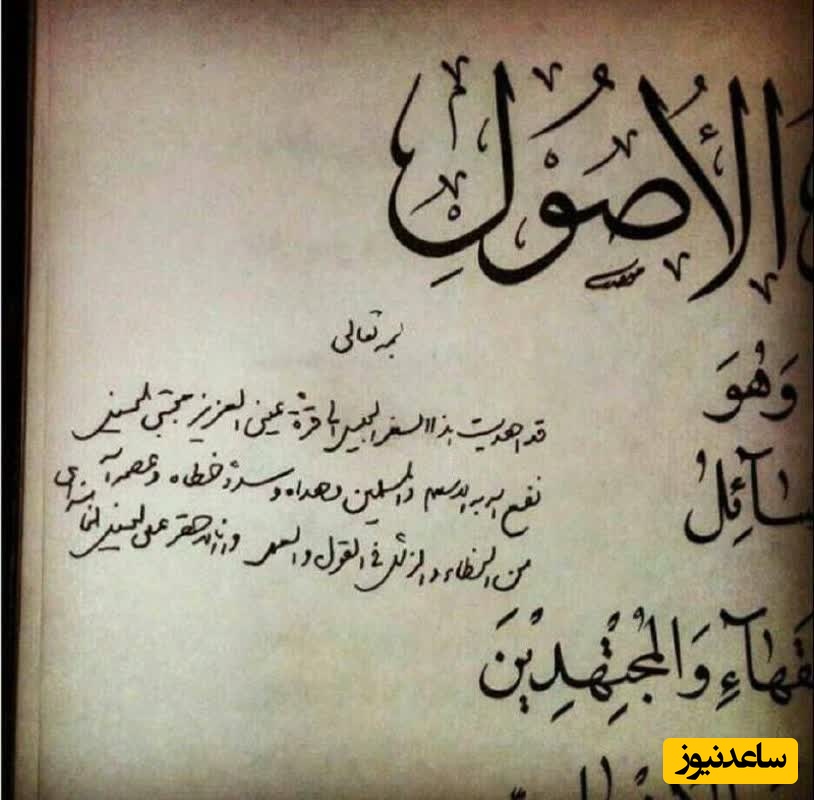 الأُصُولِ
بسمه تعالی
وَهُوَ
قد اهدیت هذا السفر الجلیل الی قرة عینی العزیز مجتبی الحسینی
نفع الله به الاسلام والمسلمین وهداه وسدد خطاه وعصمه
من الخطاء والزلل فی القول والعمل وانا الاحقر علی الحسینی الخامنه‌ای
وَالْمُجْتَهِدِينَ
ساعدنیوز